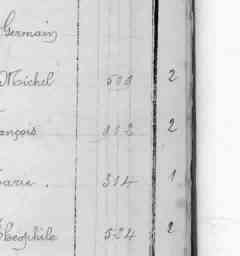 Germain
Michel 599 2
ançois 112 2
arie . 314 1
Théophile 524 2